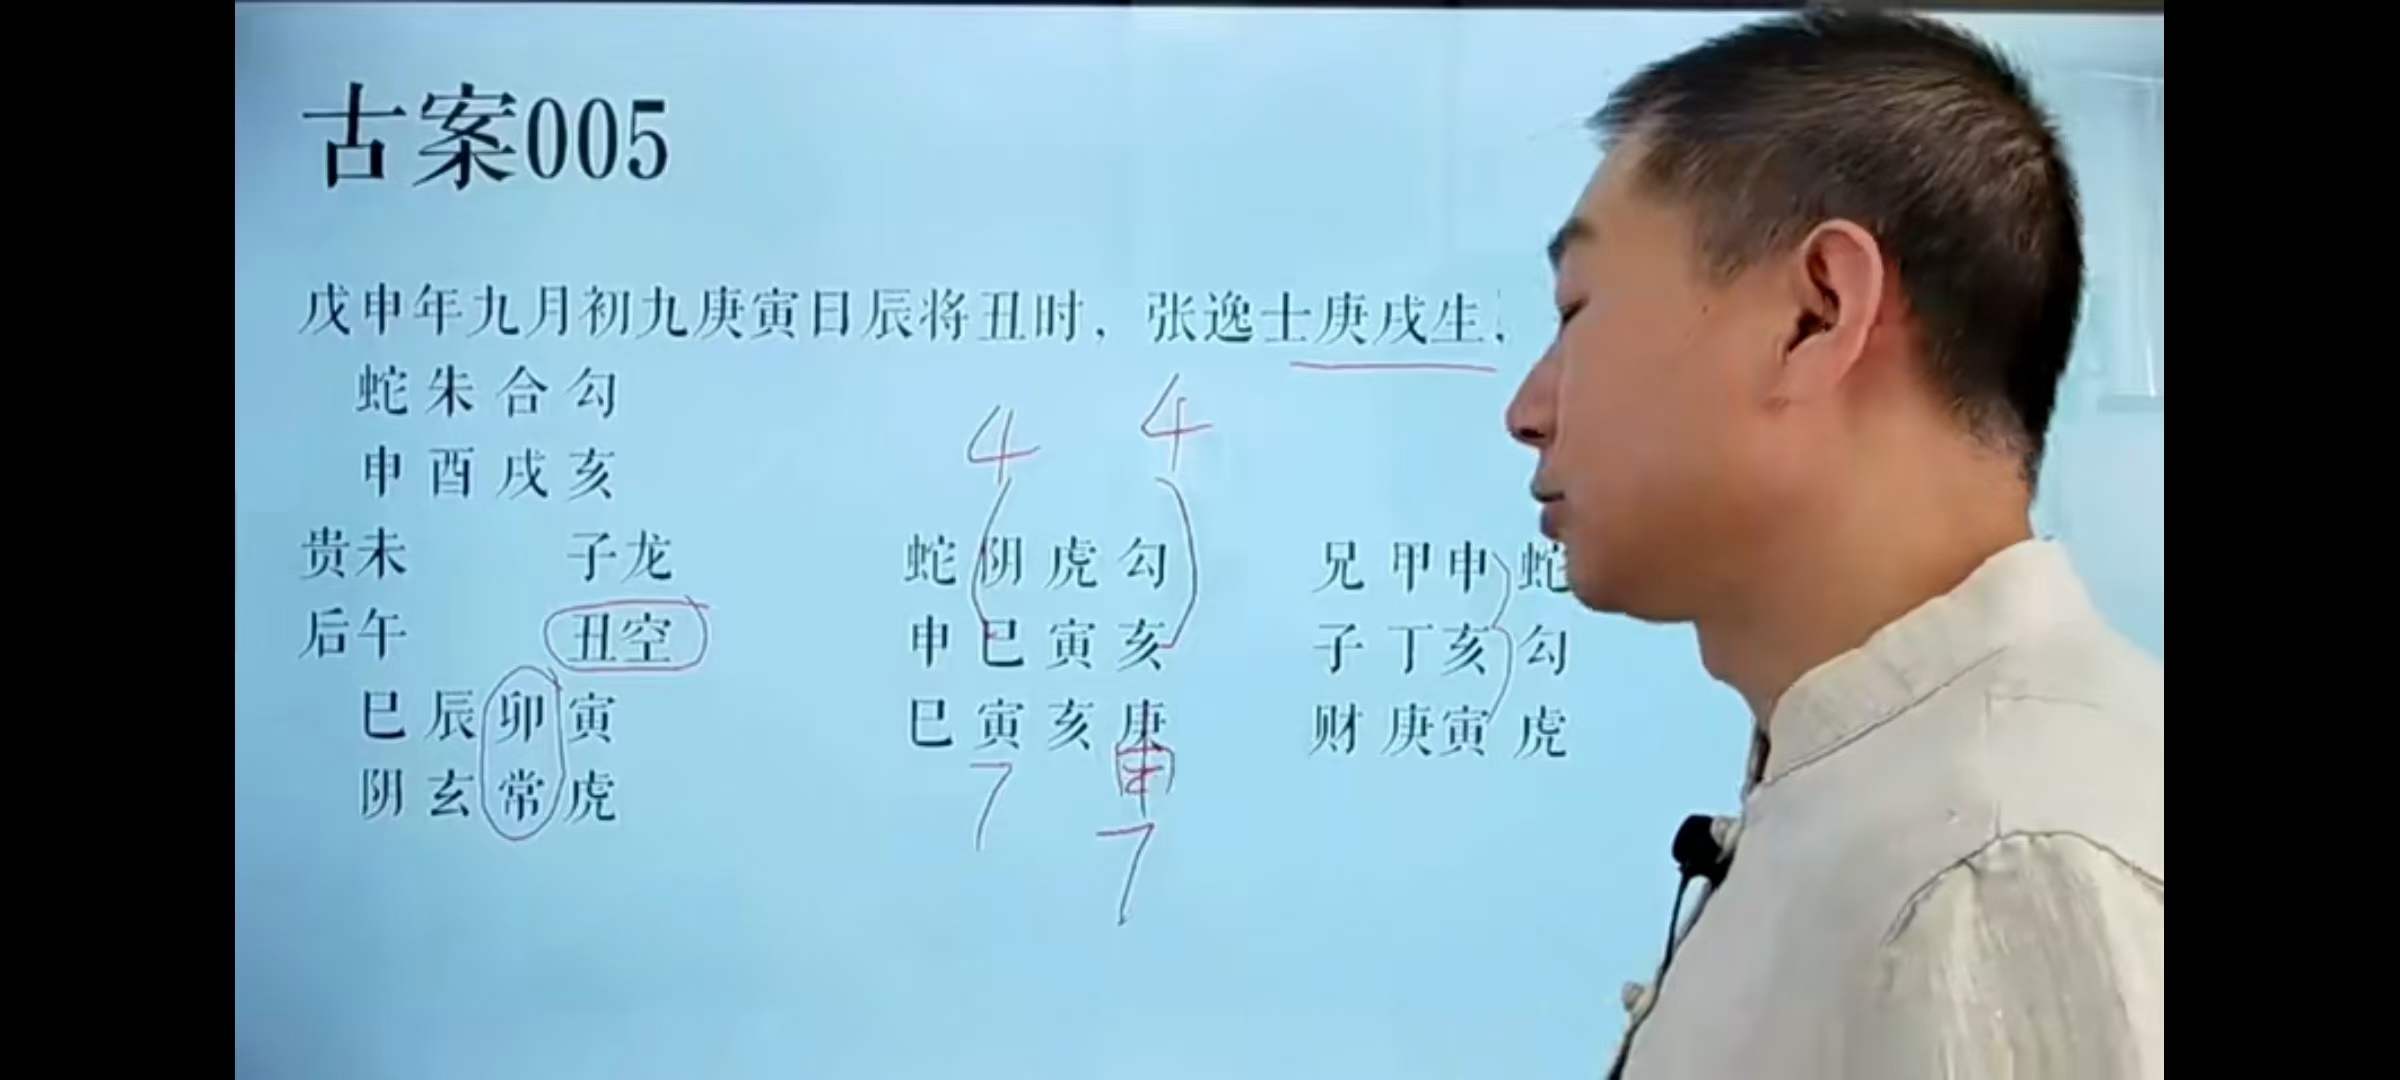 古案005
戊申年九月初九庚寅日辰将丑时，张逸士庚戌生，
蛇朱合勾
申酉戌亥
贵未 子龙
后午 丑空
巳辰卯寅
阴玄常虎
4 4
蛇阴虎勾
申巳寅亥
巳寅亥庚
申
7 7
兄甲申蛇
子丁亥勾
财庚寅虎